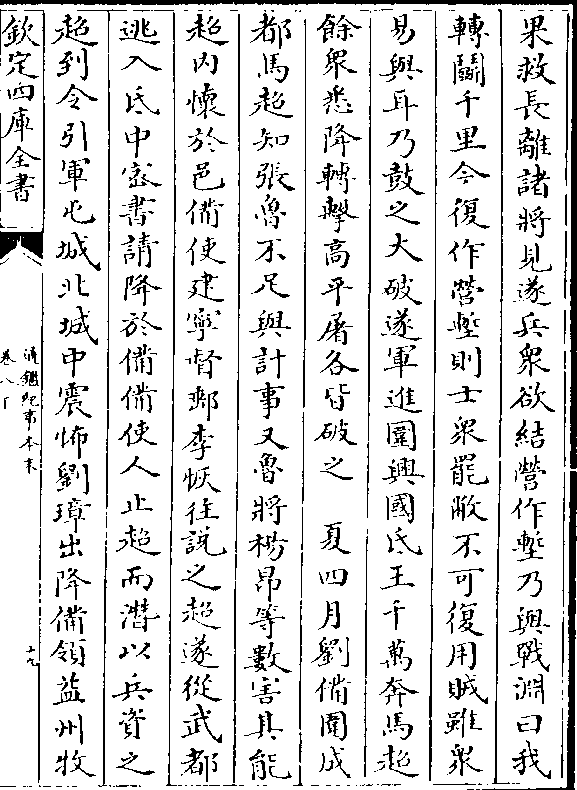 果救長離諸將見遂兵衆欲結營作塹乃與戰淵曰我
轉鬭千里今復作營塹則士衆罷敝不可復用賊雖衆
易與耳乃鼓之大破遂軍進圍興國氐王千萬奔馬超
餘衆悉降轉擊高平屠各皆破之　夏四月劉備圍成
都馬超知張魯不足與計事又魯將楊昂等數害其能
超内懷於邑備使建寧督郵李恢往說之超遂從武都
逃入氐中密書請降於備備使人止超而潛以兵資之
超到令引軍屯城北城中震怖劉璋出降備領益州牧
欽定四庫全書
通鑑紀事本末
卷八下
十九